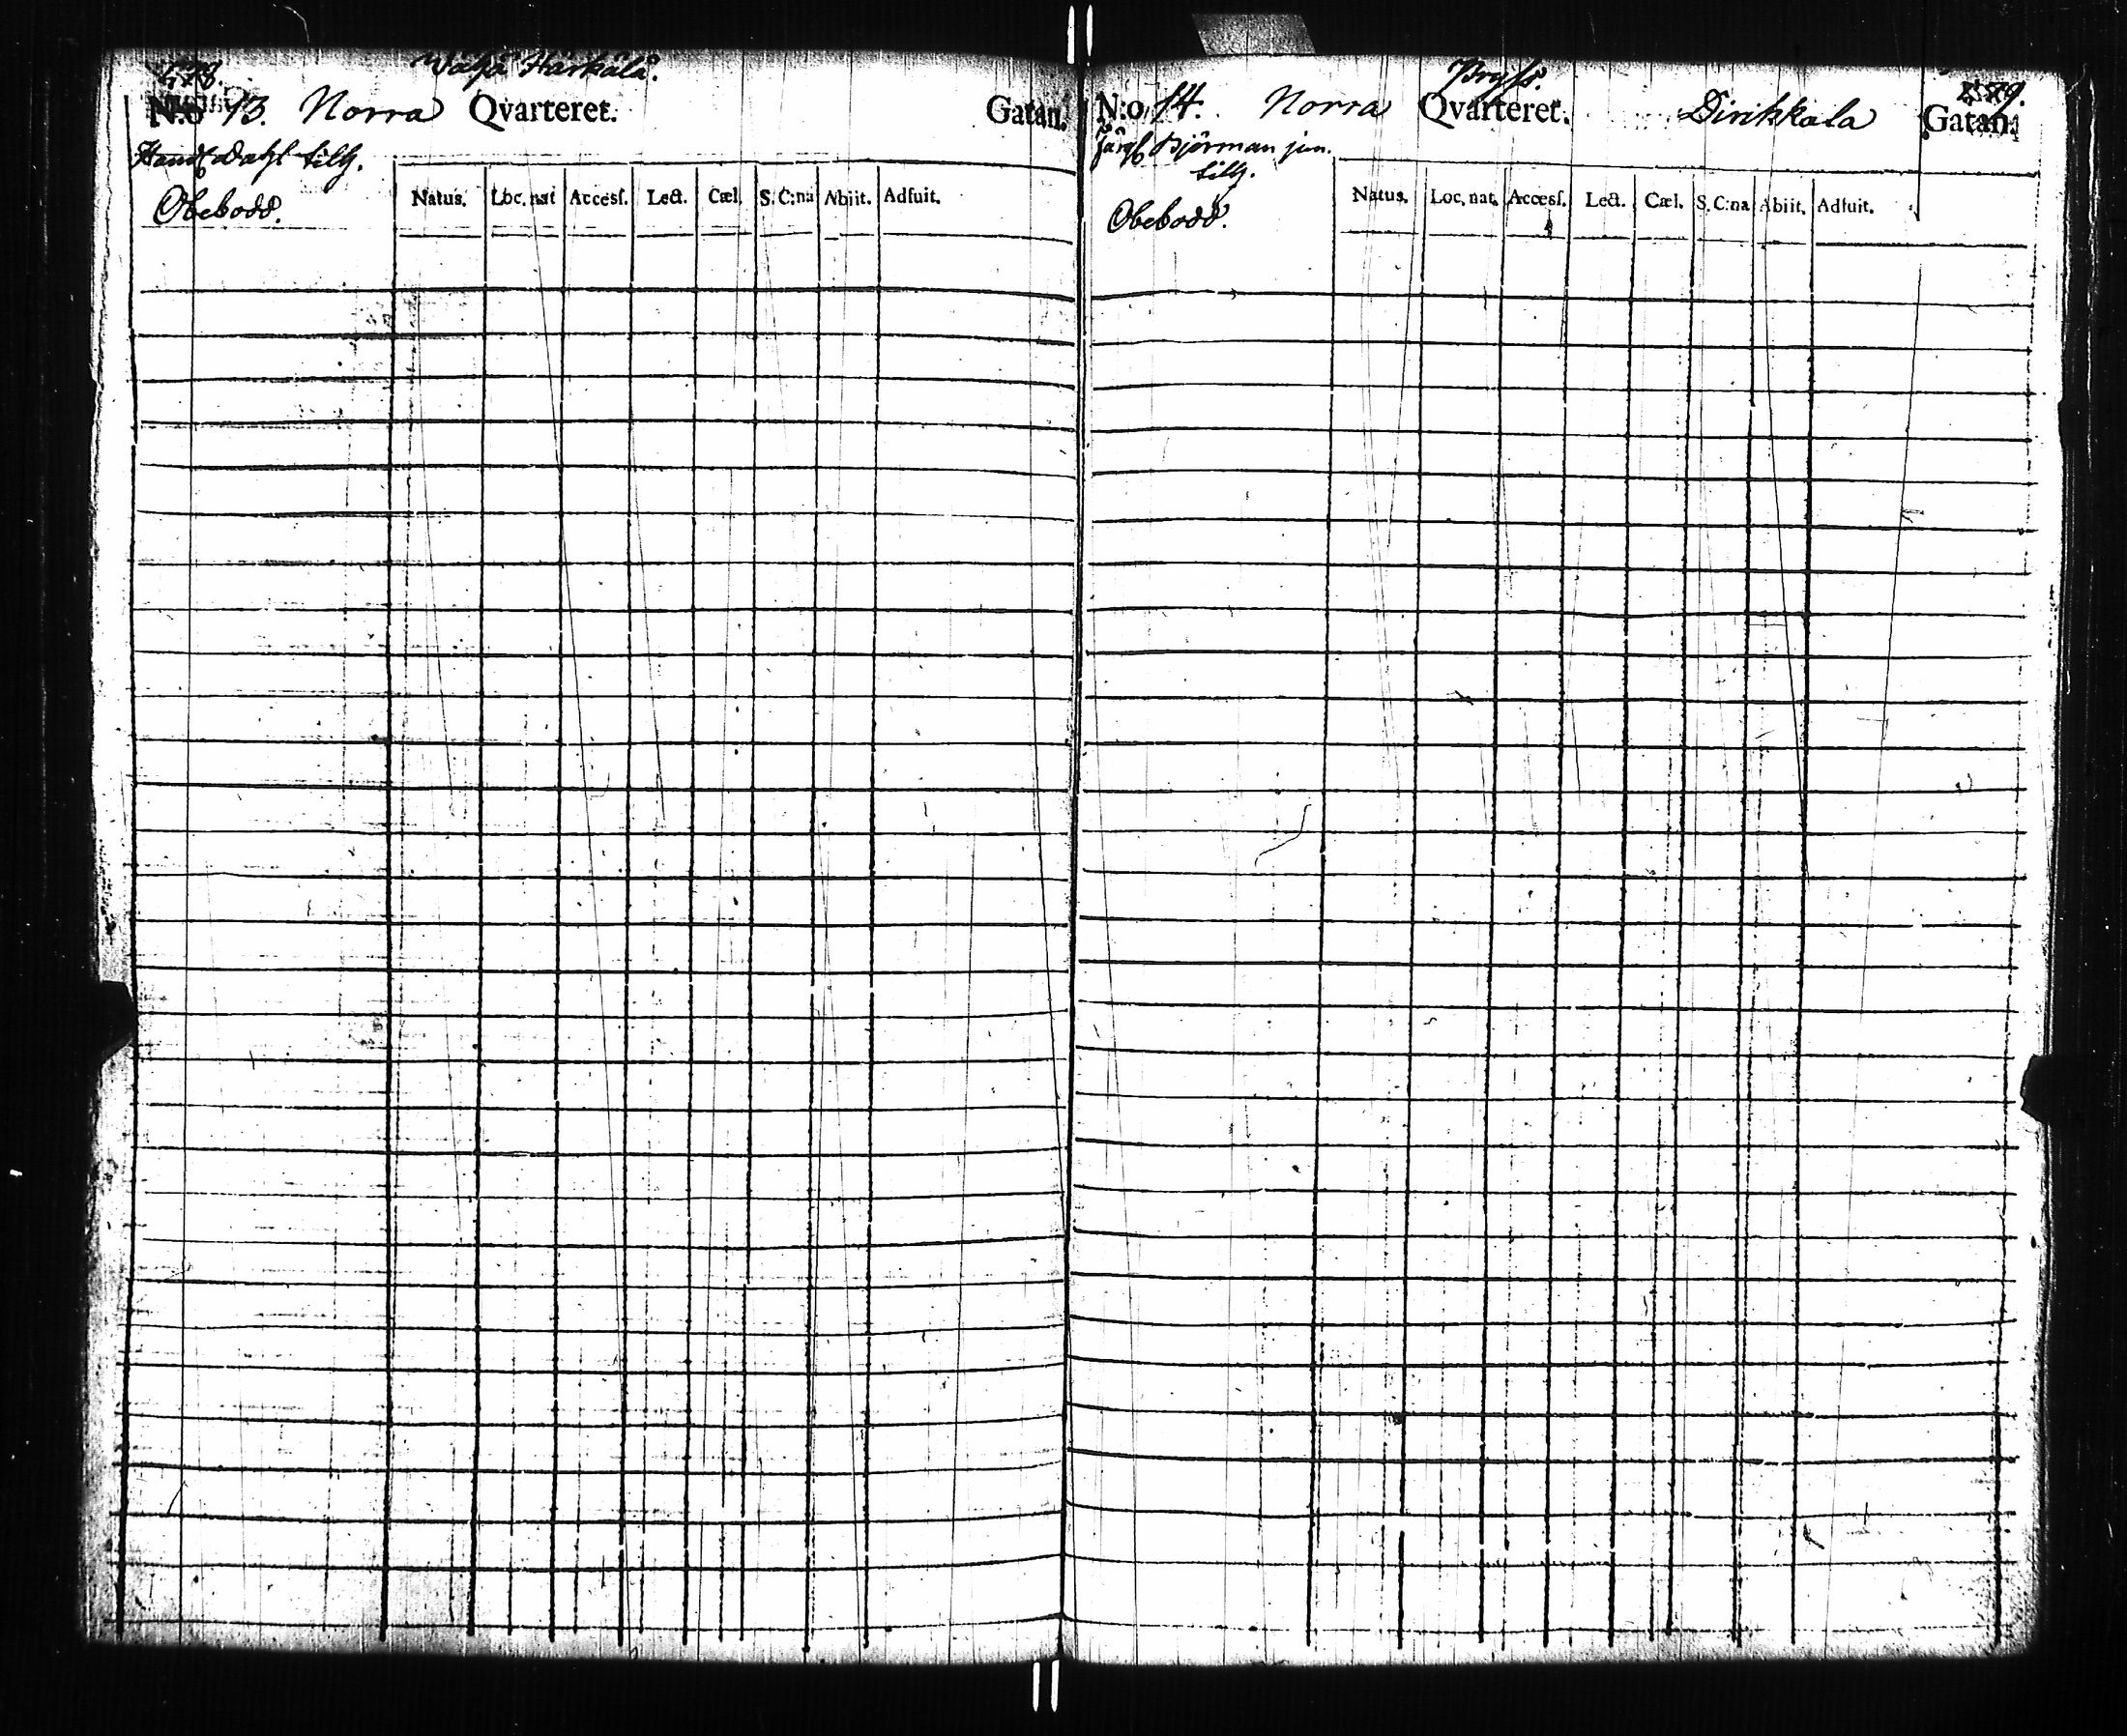 578.
Wäha Härkälä.
N:o 13. Norra Qvarteret. Gatan.
Handl. Dahl tillh.
Obebodd.
Natus. Loc. nat Accesſ. Lect. Cæl. S. C:na Abiit. Adfuit.
579.
Pryss.
N:o 14. Norra Qvarteret. Dirikkala Gatan.
Färg. Björman jun.
tillh.
Obebodd.
Natus. Loc. nat. Accesſ. Lect. Cæl. S. C:na Abiit. Adfuit.